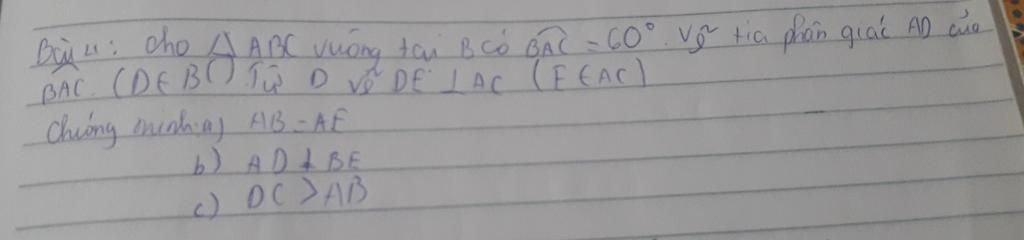 Bài 4: Cho △ ABC vuông tại B có BAC = 60°. Vẽ tia phân giác AD của
BAC. (D ∈ BC). Từ D vẽ DE ⊥ AC (E ∈ AC)
Chứng minh: a) AB = AE
b) AD ⊥ BE
c) DC > AB